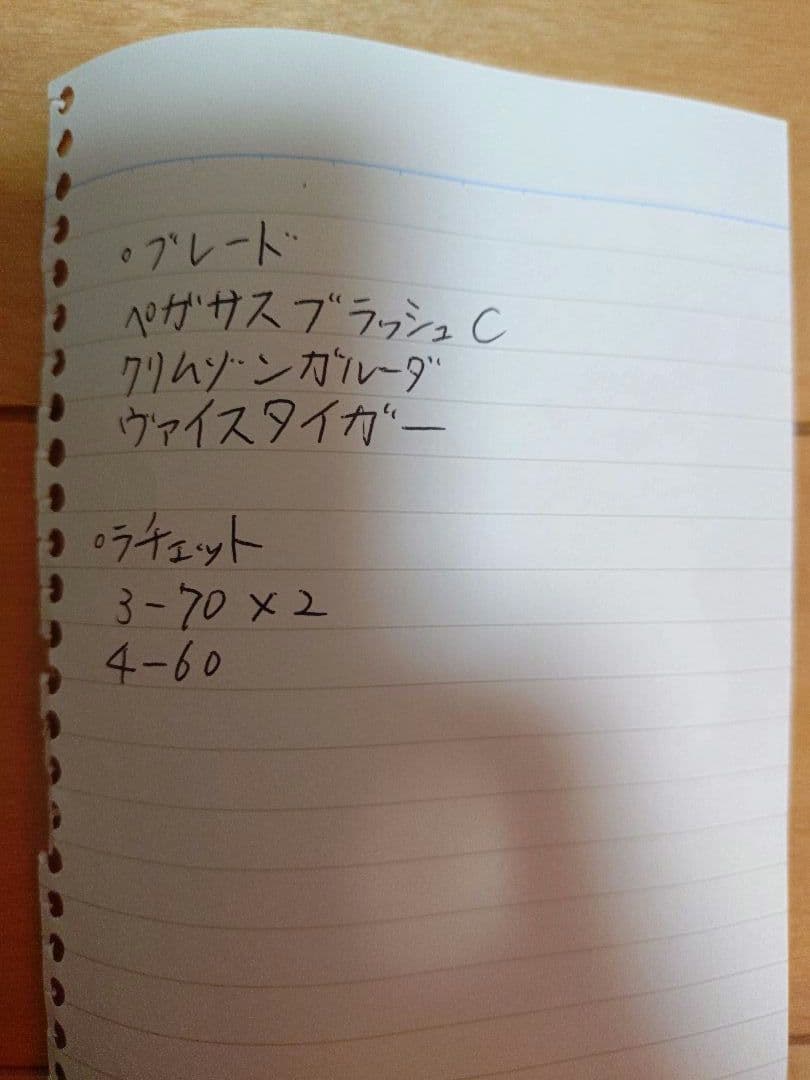 ○ブレード
ペガサスブラッシュC
クリムゾンガルーダ
ヴァイスタイガー
○ラチェット
3-70×2
4-60